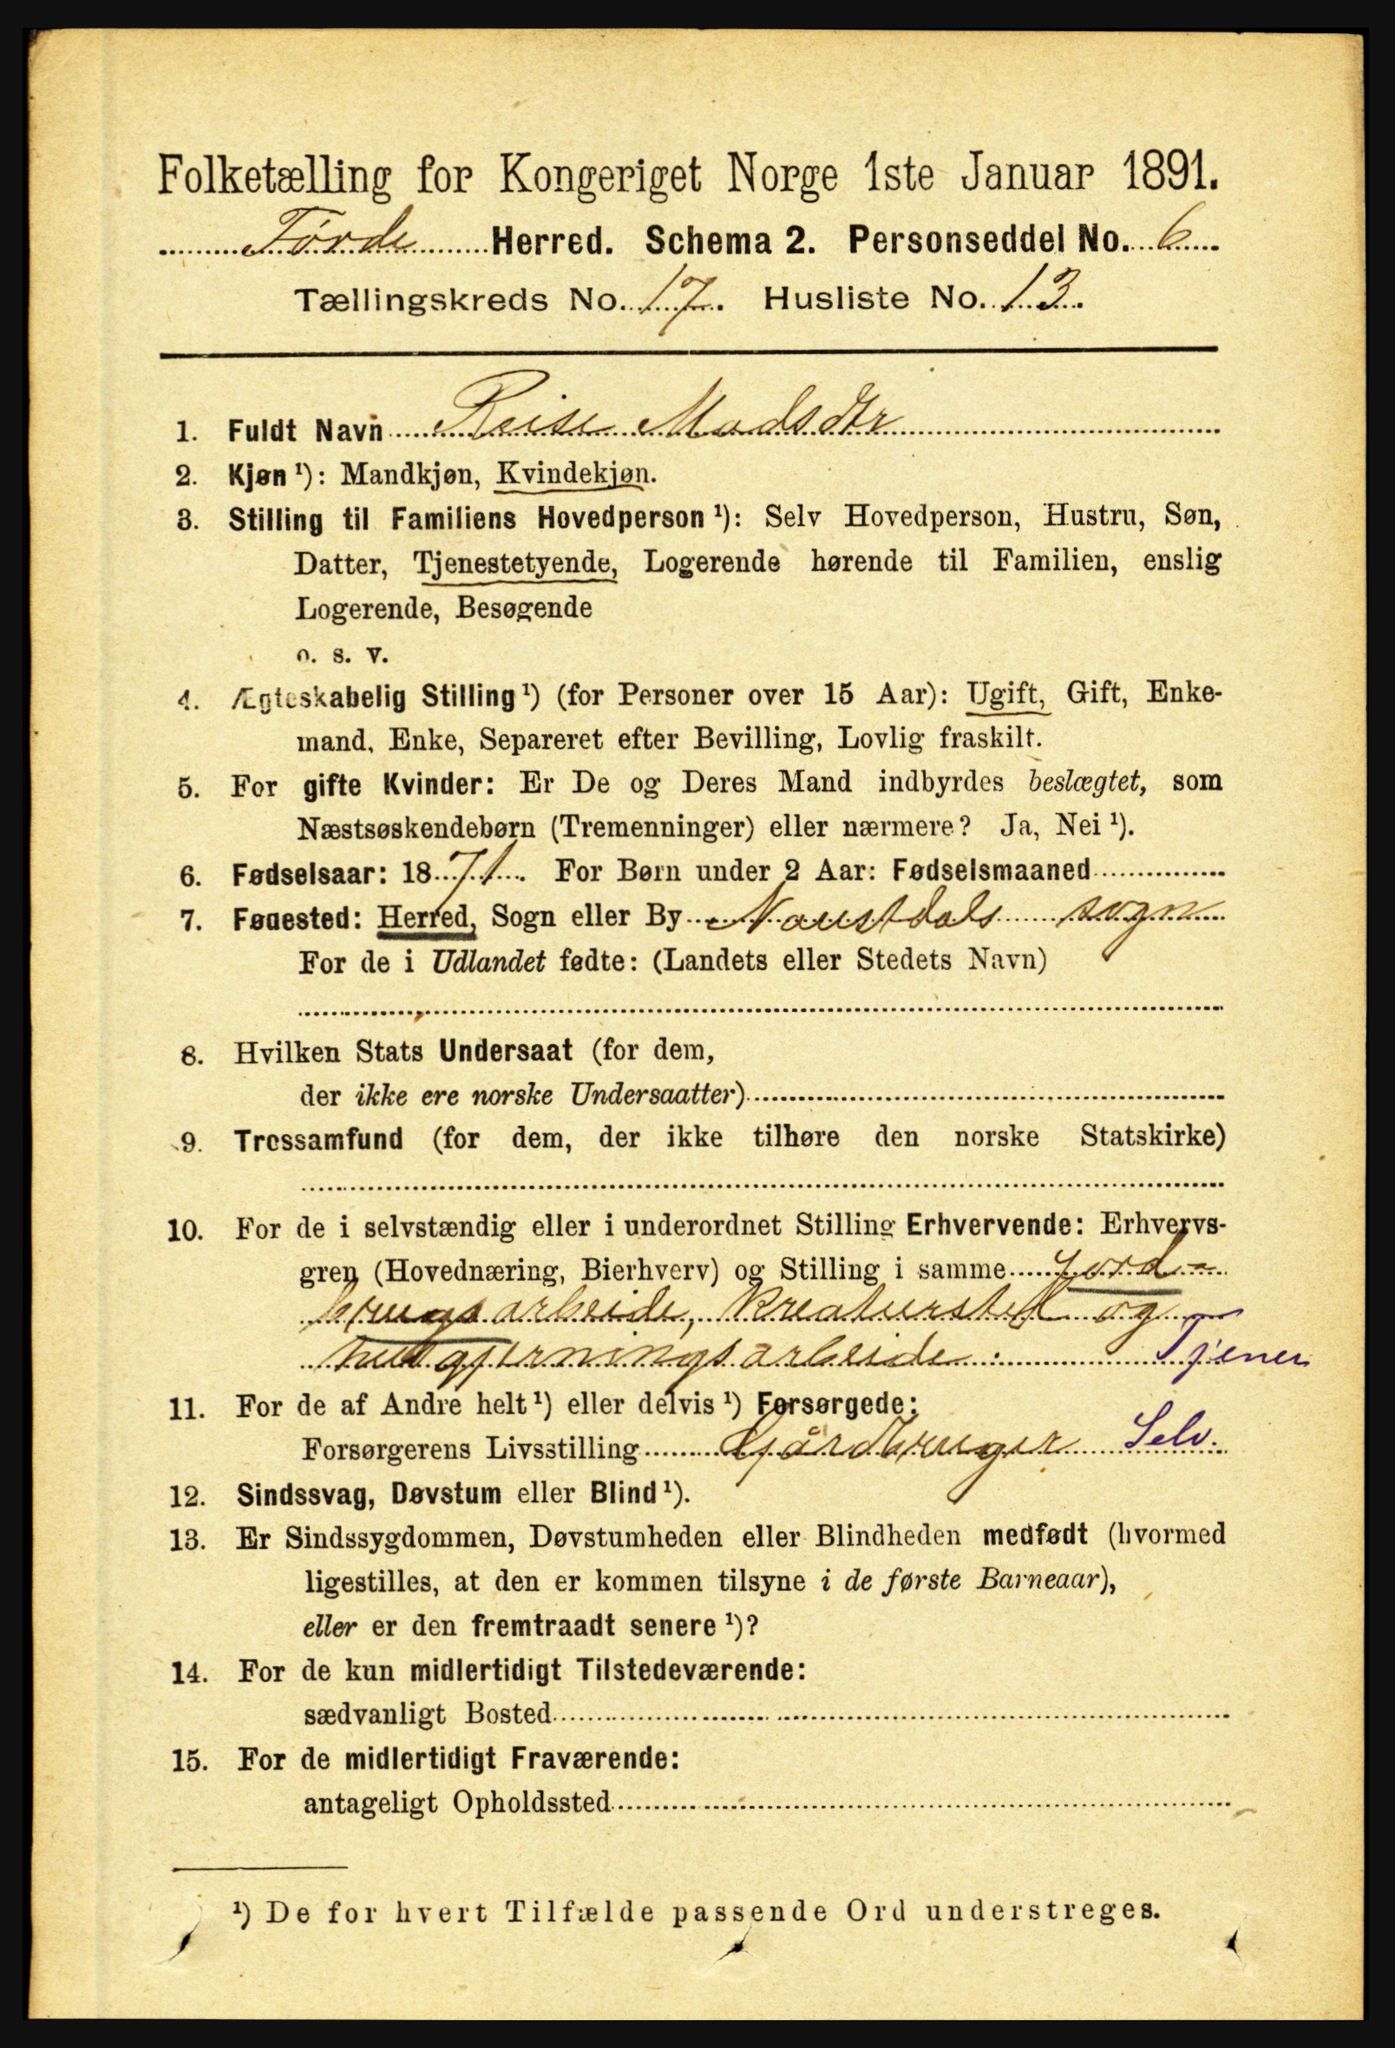 Folketælling for Kongeriget Norge 1ste Januar 1891.
Førde Herred. Schema 2. Personseddel No. 6
Tællingskreds No. 17. Husliste No. 13.
1. Fuldt Navn Reise Madsdtr
2. Kjøn ¹): Mandkjøn, Kvindekjøn.
3. Stilling til Familiens Hovedperson ¹): Selv Hovedperson, Hustru, Søn,
Datter, Tjenestetyende, Logerende hørende til Familien, enslig
Logerende, Besøgende
o. s. v.
4. Ægteskabelig Stilling ¹) (for Personer over 15 Aar): Ugift, Gift, Enke-
mand, Enke, Separeret efter Bevilling, Lovlig fraskilt.
5. For gifte Kvinder: Er De og Deres Mand indbyrdes beslægtet, som
Næstsøskendebørn (Tremenninger) eller nærmere? Ja, Nei ¹).
6. Fødselsaar: 1871. For Børn under 2 Aar: Fødselsmaaned
7. Føuested: Herred, Sogn eller By Naustdals sogn
For de i Udlandet fødte: (Landets eller Stedets Navn)
8. Hvilken Stats Undersaat (for dem,
der ikke ere norske Undersaatter)
9. Trossamfund (for dem, der ikke tilhøre den norske Statskirke)
10. For de i selvstændig eller i underordnet Stilling Erhvervende: Erhvervs-
gren (Hovednæring, Bierhverv) og Stilling i samme Jord-
brugsarbeide, Kreaturstel og
husgjerningsarbeide. Tjener
11. For de af Andre helt ¹) eller delvis ¹) Forsørgede:
Forsørgerens Livsstilling Gårdbruger Selv.
12. Sindssvag, Døvstum eller Blind ¹).
13. Er Sindssygdommen, Døvstumheden eller Blindheden medfødt (hvormed
ligestilles, at den er kommen tilsyne i de første Barneaar),
eller er den fremtraadt senere ¹)?
14. For de kun midlertidigt Tilstedeværende:
sædvanligt Bosted
15. For de midlertidigt Fraværende:
antageligt Opholdssted
¹) De for hvert Tilfælde passende Ord understreges.